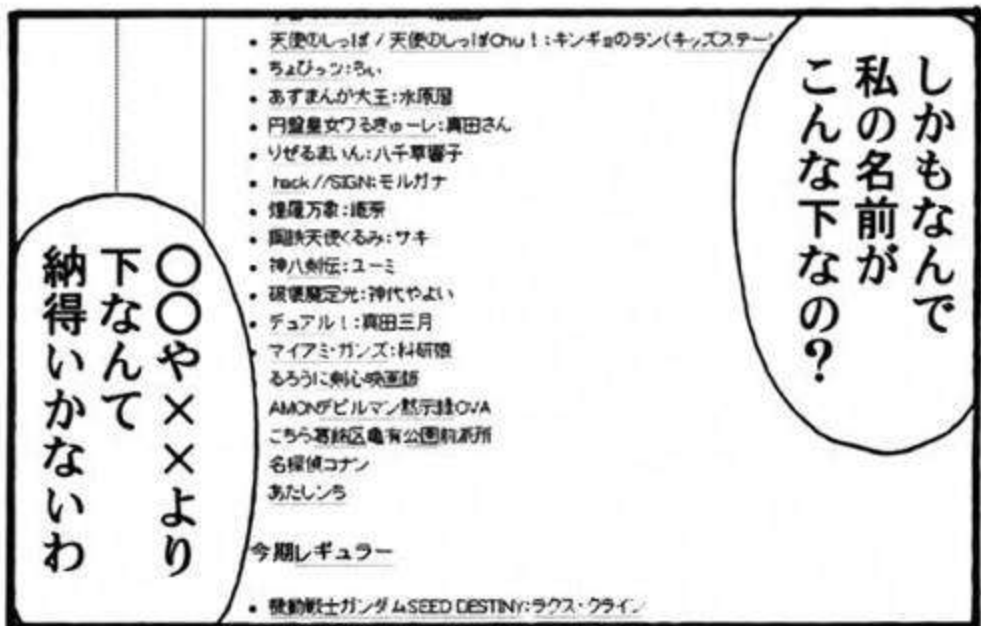 しかもなんで
私の名前が
こんな下なの？
• 天使のしっぽ / 天使のしっぽChu！:キンギョのラン(キッズステー
• ちょびっツ:ちぃ
• あずまんが大王:水原暦
• 円盤皇女ワるきゅーレ:真田さん
• りぜるまいん:八千草響子
• .hack//SIGN:モルガナ
• 煌羅万象:
• 鋼鉄天使くるみ:サキ
• 神八剣伝:ユーミ
• 破壊魔定光:神代やよい
• デュアル！:真田三月
• マイアミ・ガンズ:科研娘
るろうに剣心映画版
AMONデビルマン黙示録OVA
こちら葛飾区亀有公園前派所
名探偵コナン
あたしンち
今期レギュラー
• 機動戦士ガンダムSEED DESTINY:ラクス・クライン
〇〇や××より
下なんて
納得いかないわ